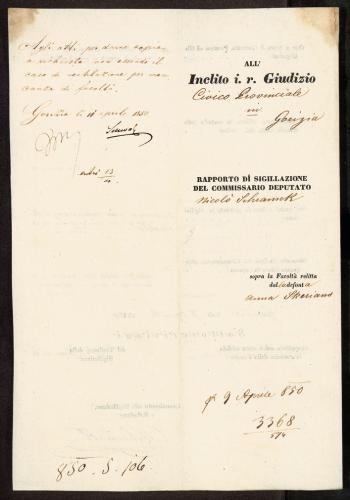 Agli atti, per dare copia
a richiesta non essendo il
caso di ventilazione per man-
canza di facoltà.
Gorizia li 11 aprile 850
13
ALL'
Inclito i. r. Giudizio
Civico Provinciale
in
Gorizia
RAPPORTO DI SIGILLAZIONE
DEL COMMISSARIO DEPUTATO
Nicolò
sopra la Facoltà relitta
dalla defonta
Anna
9 Aprile 850
3368
850. S. 106.